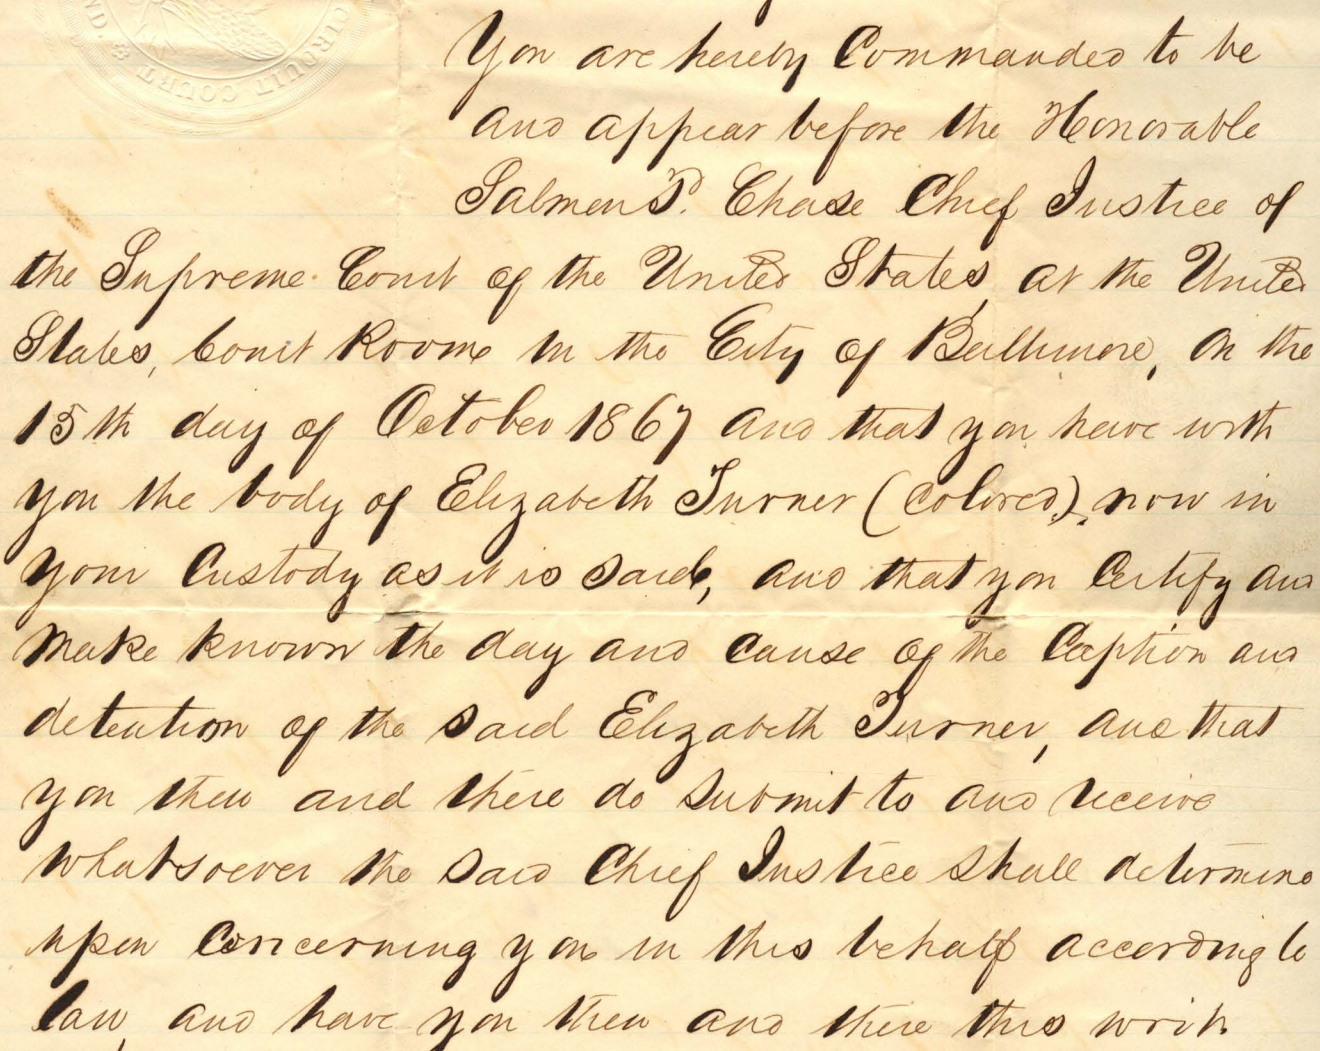 CIRCUIT COURT
You are hereby Commanded to be
and appear before the Honorable
Salmon P. Chase Chief Justice of
the Supreme Court of the United States, at the United
States, Court Room in the City of Baltimore, On the
15th day of October 1867 and that you have with
you the body of Elizabeth Turner (colored), now in
your Custody as it is said, and that you Certify and
make known the day and cause of the Caption and
detention of the said Elizabeth Turner, and that
you then and there do submit to and receive
whatsoever the said Chief Justice shall determine
upon Concerning you in this behalf according to
law, and have you then and there this writ.